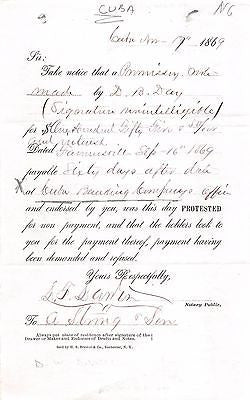 CUBA
NG
Cuba Nov 17th 1869
Sir:
Take notice that a Promissory note
made by D. B. Day
(Signature unintelligible)
for Hundred Fifty &
and interest
Dated Sep 16th 1869
payable Sixty days after date
at Cuba Banking Companys office
and endorsed by you, was this day PROTESTED
for non-payment, and that the holders look to
you for the payment thereof, payment having
been demanded and refused.
Yours Respectfully,
Notary Public,
To A. & Son
Always put place of residence after signature of the
Drawer or Maker and Endorser of Drafts and Notes.